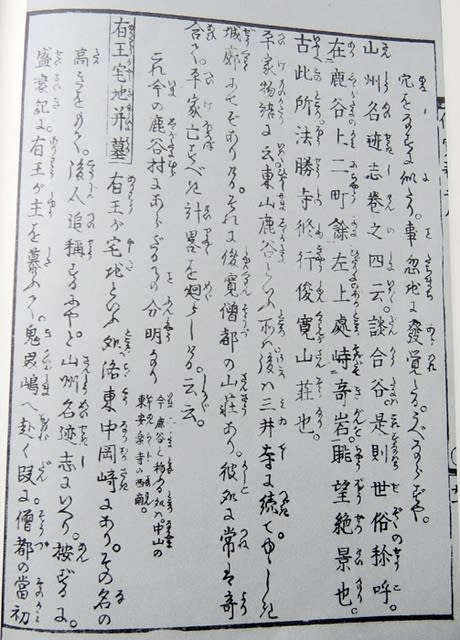 穴をなすに似たり。事忽地に發覺る。うべならずや。
山州名迹志巻之四云。談合谷。是則世俗称呼。
在鹿谷上二町餘。左上處峙竒岩。眺望絶景也。
古此所法勝寺修行俊寛山荘也。
平家物語に云東山鹿谷といふ所ハ後ハ三井寺に続て
城廓にてぞありける。それに俊寛僧都の山荘あり。彼処に常ハ寄
合て。平家亡すべき計畧を廻らしける。云云。
これ今の鹿谷村にあらざる事分明なり
今鹿谷と称る処ハ。中山の
東安楽寺の西南。
有王宅地并墓
有王が宅地といふ処洛東中岡﨑にあり。その名の
高きをめでて。後人追称するにや。と山州名迹志にいへり。按ずるに。
盛衰記に。有王が主を慕ふて。鬼界嶋へ赴く段に。僧都の當初